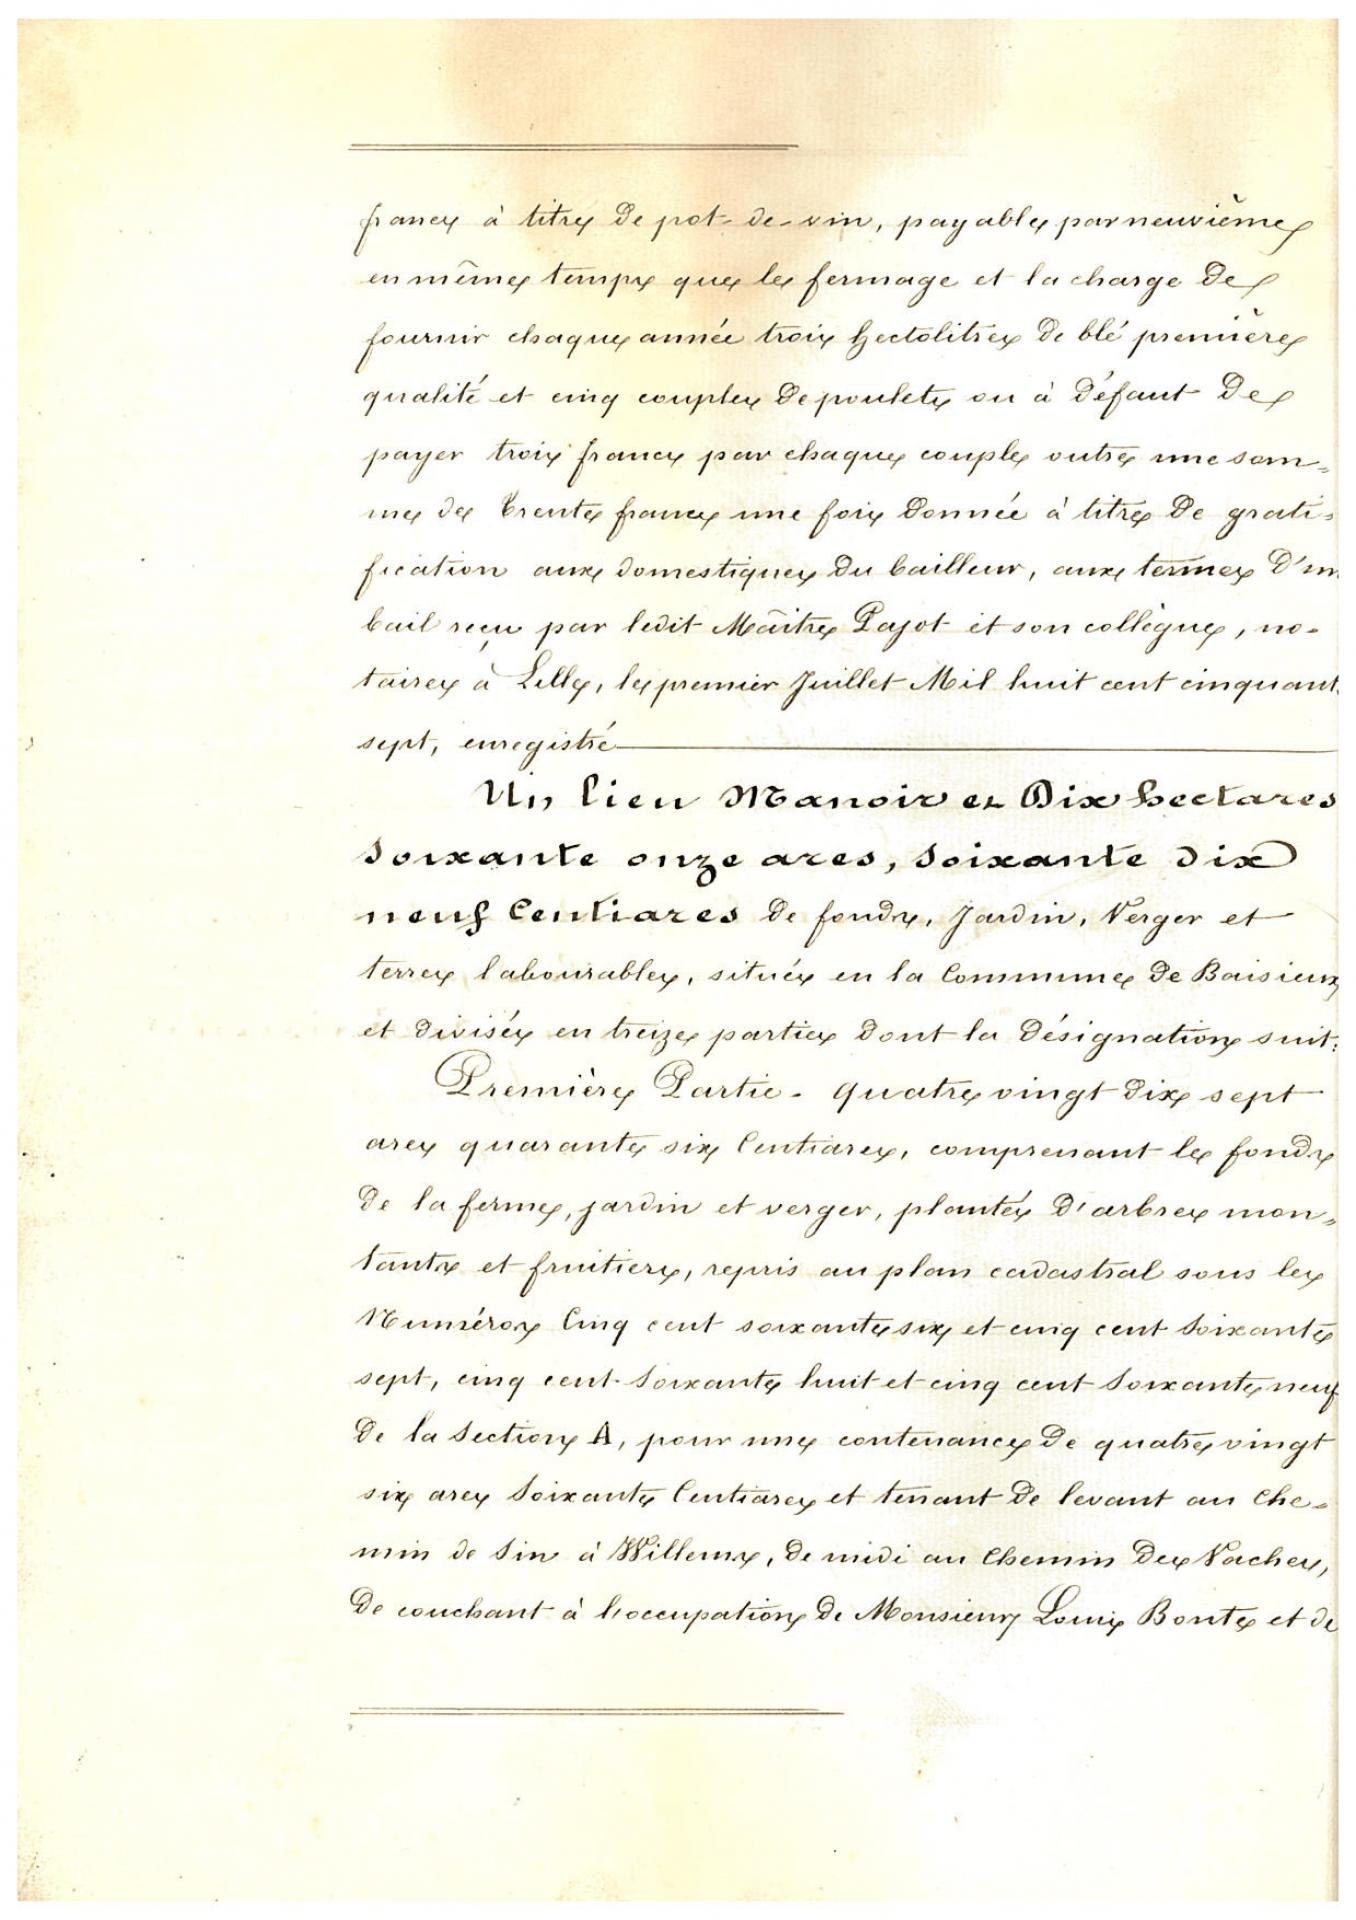 francs à titre de pot-de-vin, payable par neuvième
en même temps que le fermage et la charge de
fournir chaque année trois hectolitres de blé première
qualité et cinq couples de poulets ou à défaut de
payer trois francs par chaque couple outre une som-
me de trente francs une fois donnée à titre de grati-
fication aux domestiques du bailleur, aux termes d'un
bail reçu par ledit Maître Pajot et son collègue, no-
taires à Lille, le premier Juillet Mil huit cent cinquant
sept, enregistré
Un lieu Manoir et Dix hectares
soixante onze ares, soixante dix
neuf Centiares de fonds, Jardin, Verger et
terres labourables, situés en la Commune de Baisieux
et divisés en treize parties dont la désignation suit:
Première Partie - quatre vingt dix sept
ares quarante six Centiares, comprenant le fonds
de la ferme, jardin et verger, plantés d'arbres mon-
tants et fruitiers, repris au plan cadastral sous les
Numéros Cinq cent soixante six et cinq cent soixante
sept, cinq cent soixante huit et cinq cent soixante neuf
de la Section A, pour une contenance de quatre vingt
six ares soixante Centiares et tenant de levant au Che-
min de Sin à Willems, de midi au Chemin des Vaches,
de couchant à l'occupation de Monsieur Louis Bonte et de